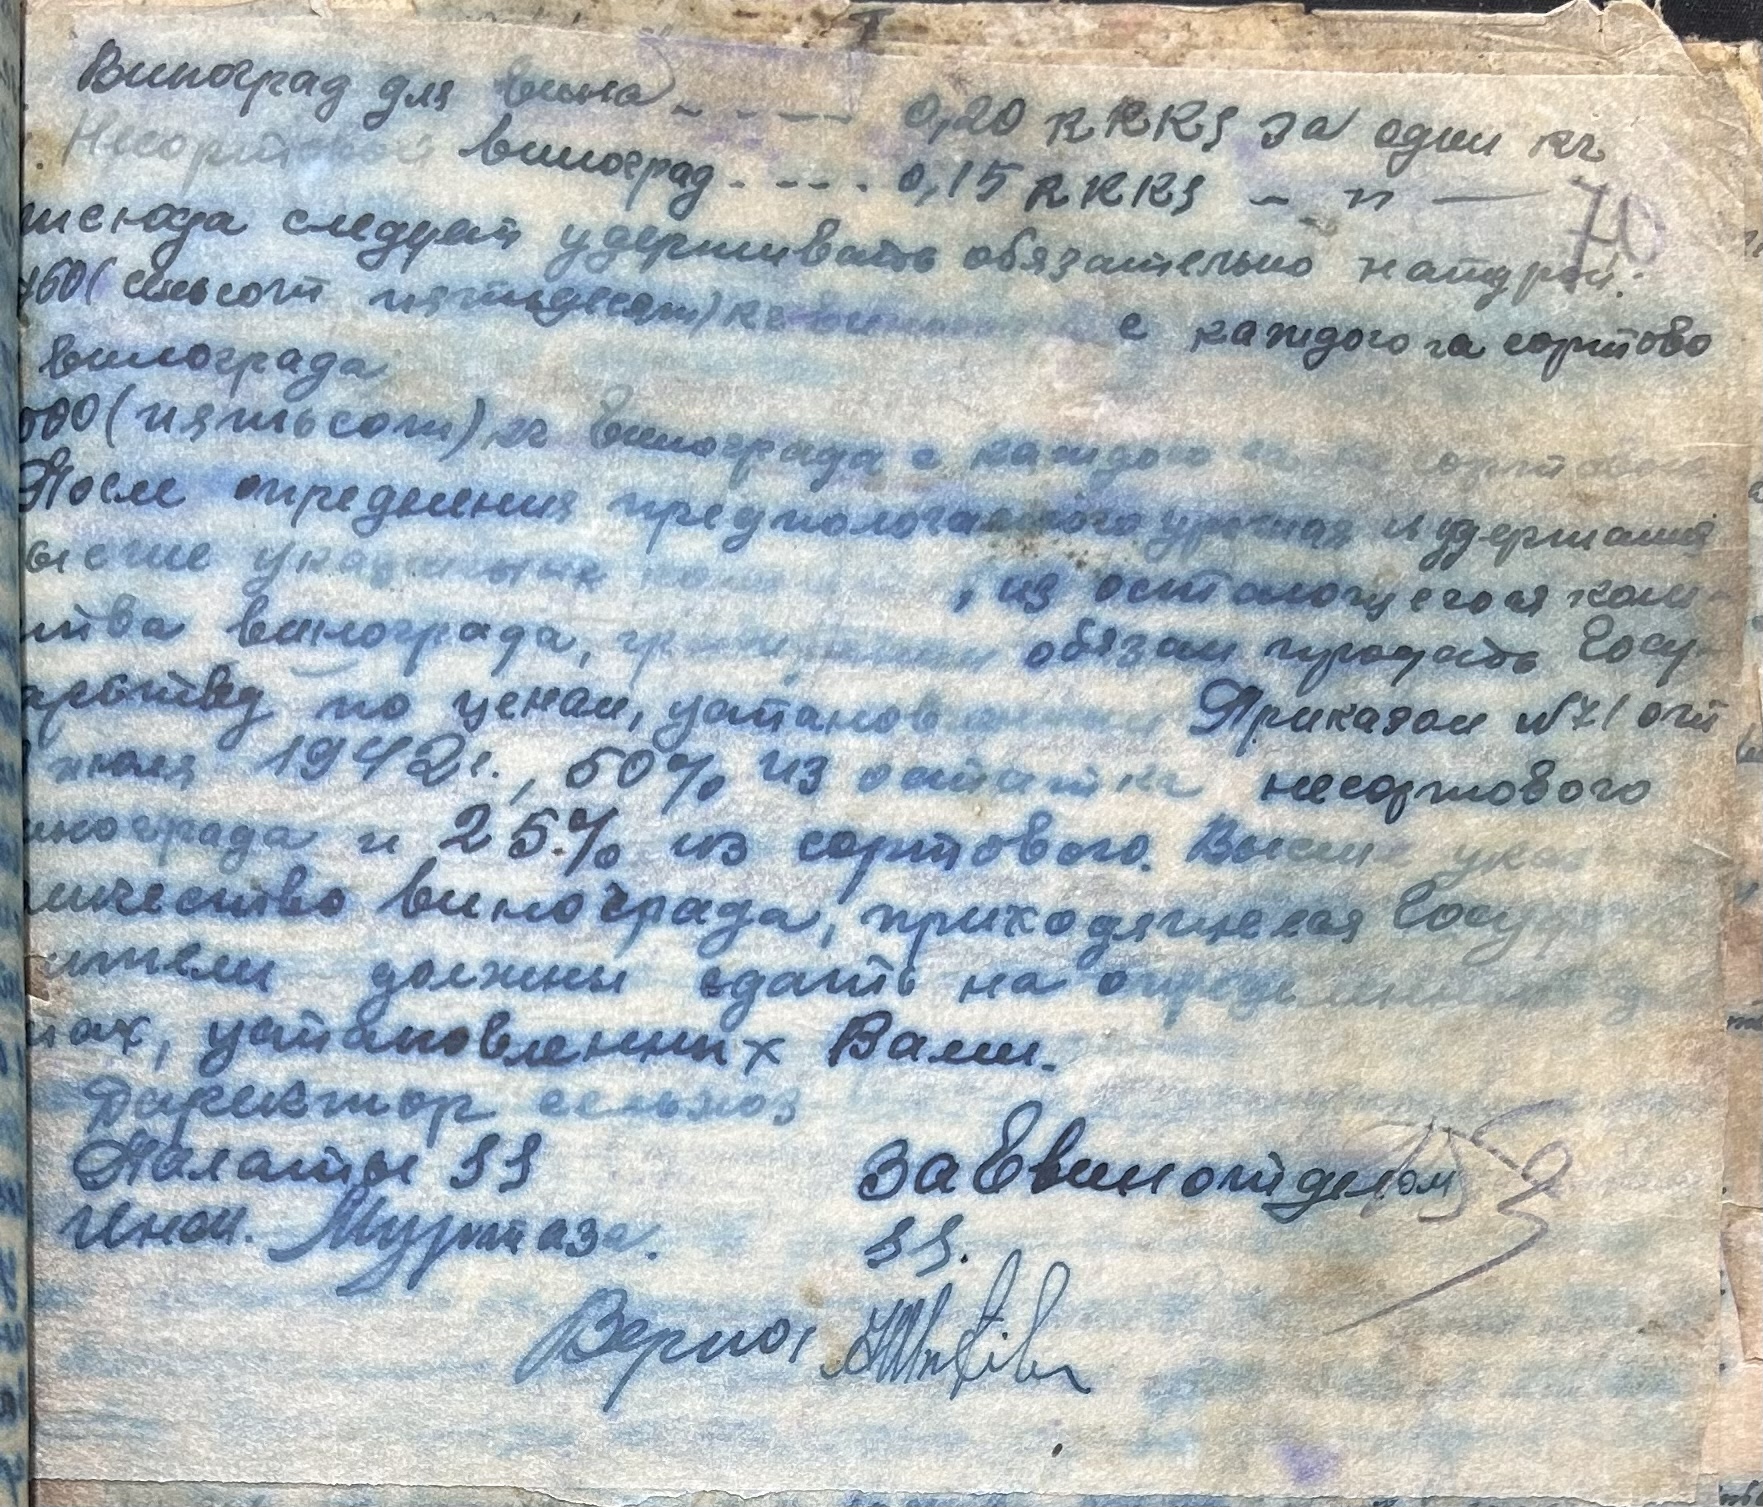 Виноград для вина - - - - 0,20 RKKS за один кг
Несортовой виноград - - - - 0,15 RKKS - " -
70
следует удерживать обязательно натурой:
(семьсот пятьдесят) кг с каждого га сортово
винограда
500 (пятьсот) кг винограда с каждого сортового
После определения предполагаемого урожая и удержания
высше указанных , из остающегося коли-
ства винограда, обязан продать Госу-
дарству по ценам, установ Приказом №71 от
июля 1942 г., 50% из остатка несортового
винограда и 25% из сортового. Высше указ
личество винограда, приходящееся Госу
должны сдать на
, установленных Вами.
Директор сельхоз
Палаты SS
Муртаза.
ЗавЕвинотделом
SS.
Верно: